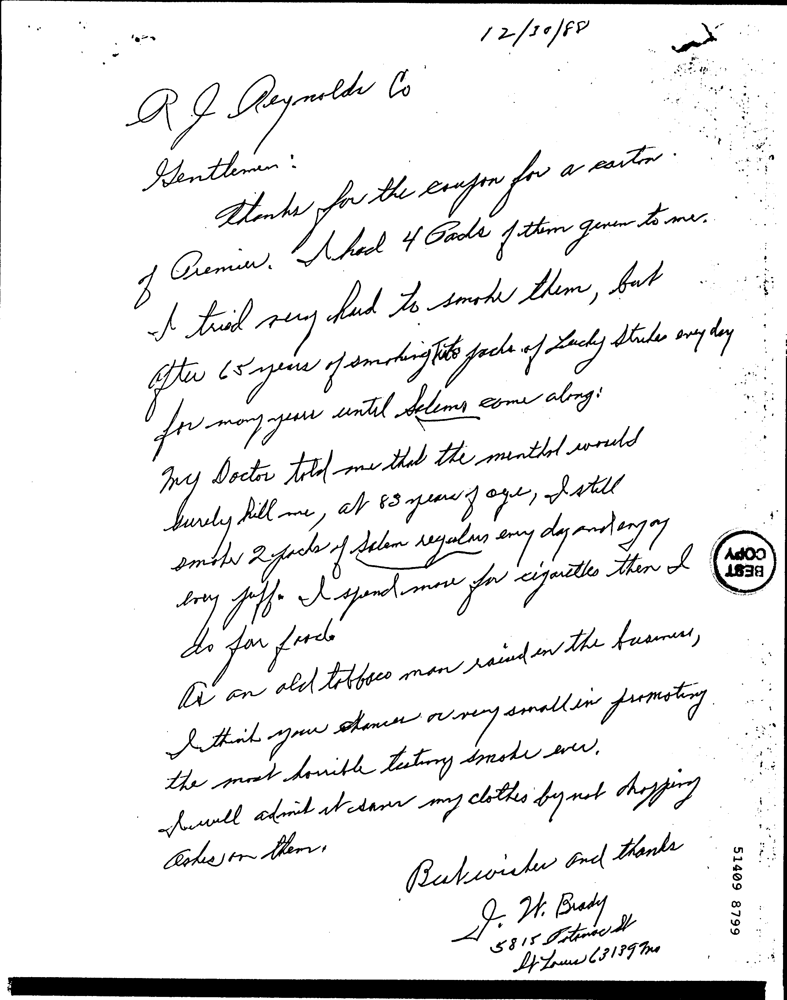 12/30/88
R J Reynolds Co
Gentlemen:
Thanks for the coupon for a carton
of Premier. I had 4 Packs of them given to me.
I tried very hard to smoke them, but
after 65 years of smoking packs of Lucky Strikes every day
for many years until Salems come along:
My Doctor told me that the menthol would
surely kill me, at 83 years of age, I still
smoke 2 packs of Salem regulars every day and enjoy
every puff. I spend more for cigarettes then I
do for food.
As an old tobbaco man raised in the business,
I think your chances or very small in promoting
the most horrible tasting smoke ever.
I will admit it saves my clothes by not dropping
ashes on them.
Best wishes and thanks
J. W. Brady
5815 Potomac St
St Louis 63139 Mo
BEST
COPY
51409 8799